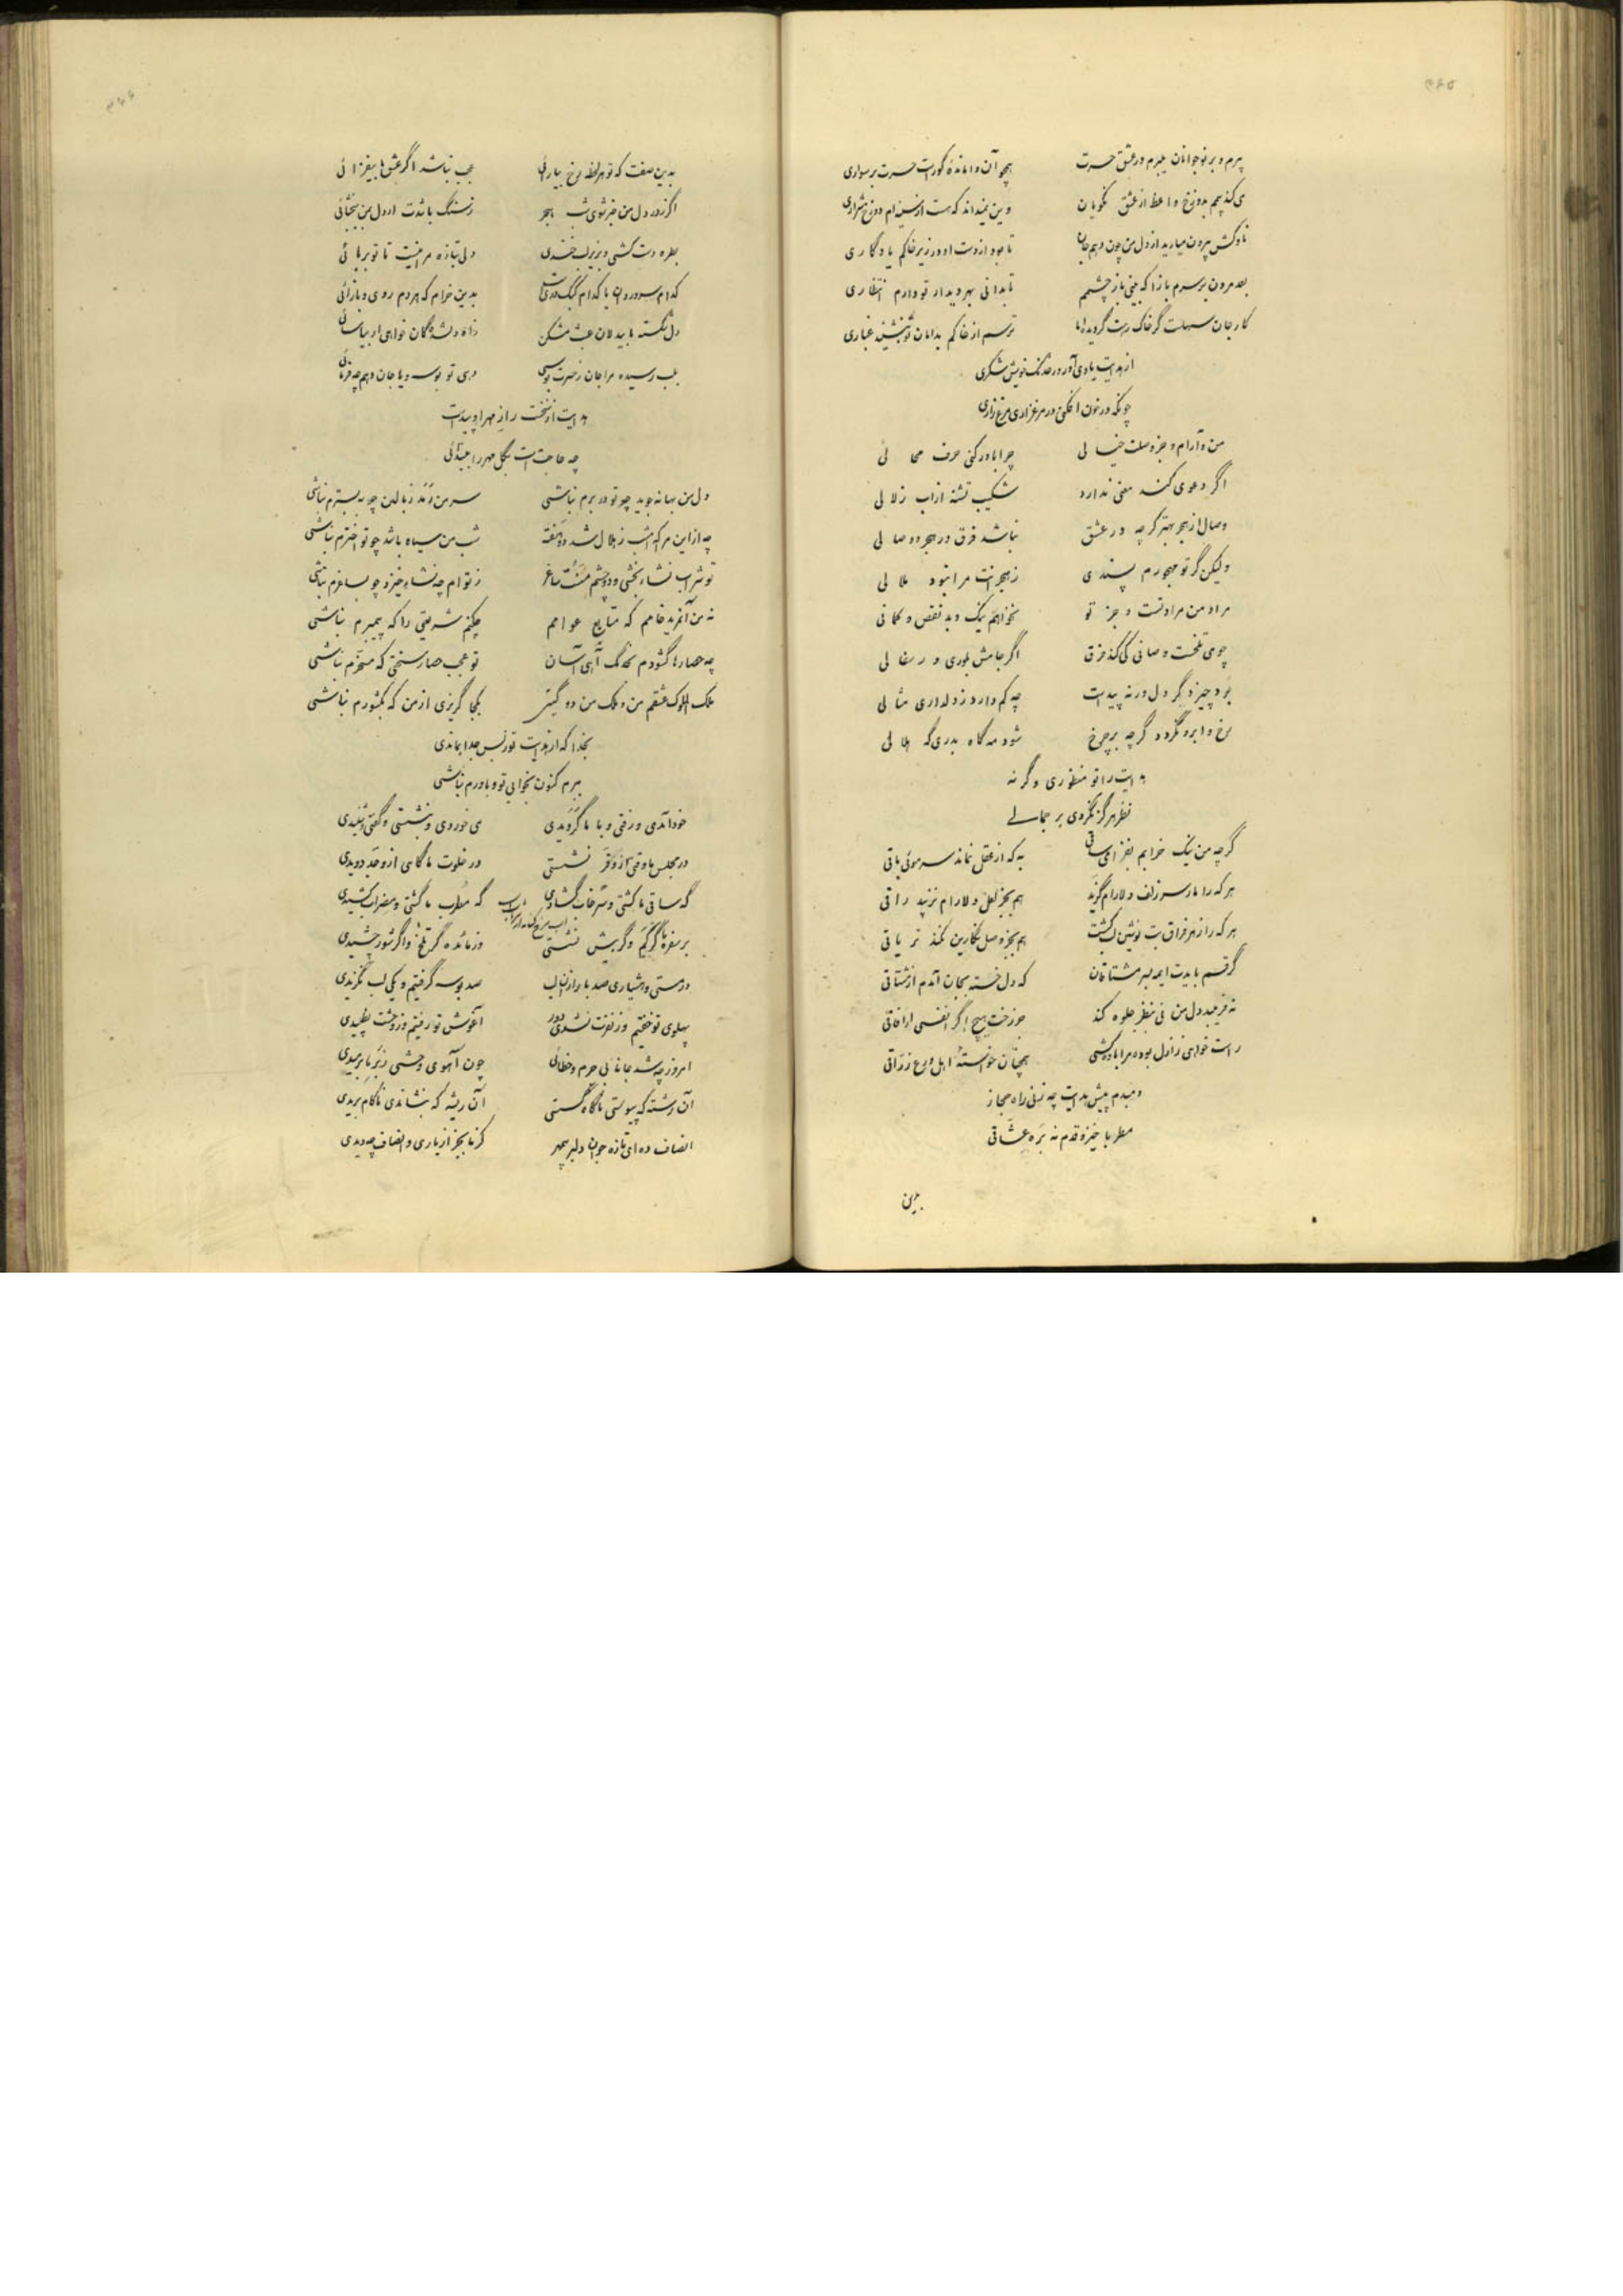 پیرم و بر نوجوانان میبرم در عشق حسرت همچو آن وامانده کوراست حسرت بر سواری
می کند بیم بدوزخ واعظ از عشق نکویان وین نمیداند که هست از سینه‌ام دوزخ شراری
ناوکش بیرون میارید از دل من چون دهم جان تا بود از دست او در زیر خاکم یادگاری
بعد مردن بر سرم باز آ که بینی باز چشمم تا بدانی بهر دیدار تو دارم انتظاری
کار جان سهلست گر خاک رهت گردید اما ترسم از خاکم بدامان تو بنشیند غباری
از هدایت یاد می آور در خدنگ خویش شکری
چونکه در خون افکنی در مرغزاری مرغ زاری
من و آرام و جز وصلت خیالی چرا باور کنی حرف محالی
اگر دعوی کند معنی ندارد شکیب تشنه از آب زلالی
وصال از هجر بهتر گرچه در عشق نباشد فرق در هجر و وصالی
ولیکن گر تو مهجورم پسندی ز هجرانت مرا نبود ملالی
مراد من مراد تست و جز تو نخواهم نیک و بد نقص و کمالی
چو می تلخست و صافی کی کند فرق اگر جامش بلوری ور سفالی
بود چیز دگر دل ورنه پیداست چه کم دارد ز دلداری مثالی
رخ و ابرو نگردد گرچه بر چرخ شود مه گاه بدری گه هلالی
هدایت را تو منظوری وگرنه
نظر هرگز نکردی بر جمالی
گرچه من نیک خرابم بفزا می ساقی به که از عقل نماند سر موئی باقی
هر که را مار سر زلف دلارام گزید هم بجز لعل دلارام نزیبد راقی
هر که را زهر فراق بت نوشین لب کشت هم بجز وصل نگارین نکند تریاقی
گر قسم بایدت ایمه بسر مشتاقان که دل خسته بجان آمدم از مشتاقی
نه فریبد دل من فی منظر جلوه کند جز رخت هیچ اگر انفسی ار آفاقی
راست خواهی ز ازل بوده مرا باده کشی همچنان خواستهٔ اهل ورع زراقی
دمبدم پیش هدایت چه زنی راه حجاز
مطربا خیز و قدم نه بره عشاقی
بدین
بدین صفت که تو هر لحظه رخ بیارائی عجب نباشد اگر عشق ما بیفزائی
اگر ز درد دل من خبر شوی شب هجر ز سنگ باشدت ار دل بمن ببخشائی
بطره دست کشی و بزیر لب خندی دلی بتازه مرا نیست تا تو بربائی
کدام سرو روان یا کدام کبک دری است بدین خرام که هر دم روی و بازآئی
دل شکسته ما بیدلان عبث مشکن
بلب رسیده مرا جان ز حسرت بوسی دهی تو بوسه و یا جان دهم چه فرمائی
هدایت از نخست راز مهر او پیداست
چه حاجت است بگل مهر را بیندائی
دل من بهانه جوید چو تو در برم نباشی سر من رمد ز بالین چو به بسترم نباشی
چه از این مرا که امشب ز هلال شد دو هفته شب من سیاه باشد چو تو اخترم نباشی
تو شراب نشاء بخشی و دو چشم مست ساغر ز توام چه نشاء خیزد چو بساغرم نباشی
نه من آنمرید خامم که متابع عوامم چکنم شریعتی را که پیمبرم نباشی
چه حصارها گشودم بخدنگ آهی آسان تو عجب حصار سختی که مسخرم نباشی
ملک الملوک عشقم من و ملک من دو گیتی بکجا گریزی از من که بکشورم نباشی
بخدا که از هدایت تو ز بس جدا بماندی
ببرم کنون بخوابی تو و باورم نباشی
خود آمدی و رفتی و با ما گرویدی می خوردی و بنشستی و گفتی و شنیدی
در مجلس ما وقتی از وقر نشستی در خلوت ما گاهی از وجد دویدی
گه ساقی ما گشتی و گه مطرب ما گشتی و مضراب کشیدی
بر سفرهٔ ما گر کم و گر بیش نشستی وز مائده گر تلخ و اگر شور چشیدی
در مستی و هشیاری صد بار از آن لب صد بوسه گرفتیم و یکی لب نگزیدی
پهلوی تو خفتیم و ز نفرت نشدی دور آغوش تو رفتیم و ز وحشت نطپیدی
امروز چه شد جانا بی جرم و خطائی چون آهوی وحشی ز بر ما برمیدی
آن رشته که پیوستی ناگاه گسستی آن ریشه که بنشاندی ناکام بریدی
انصاف ده ای تازه جوان دلبر بیمهر کز ما بجز از یاری و انصاف چه دیدی